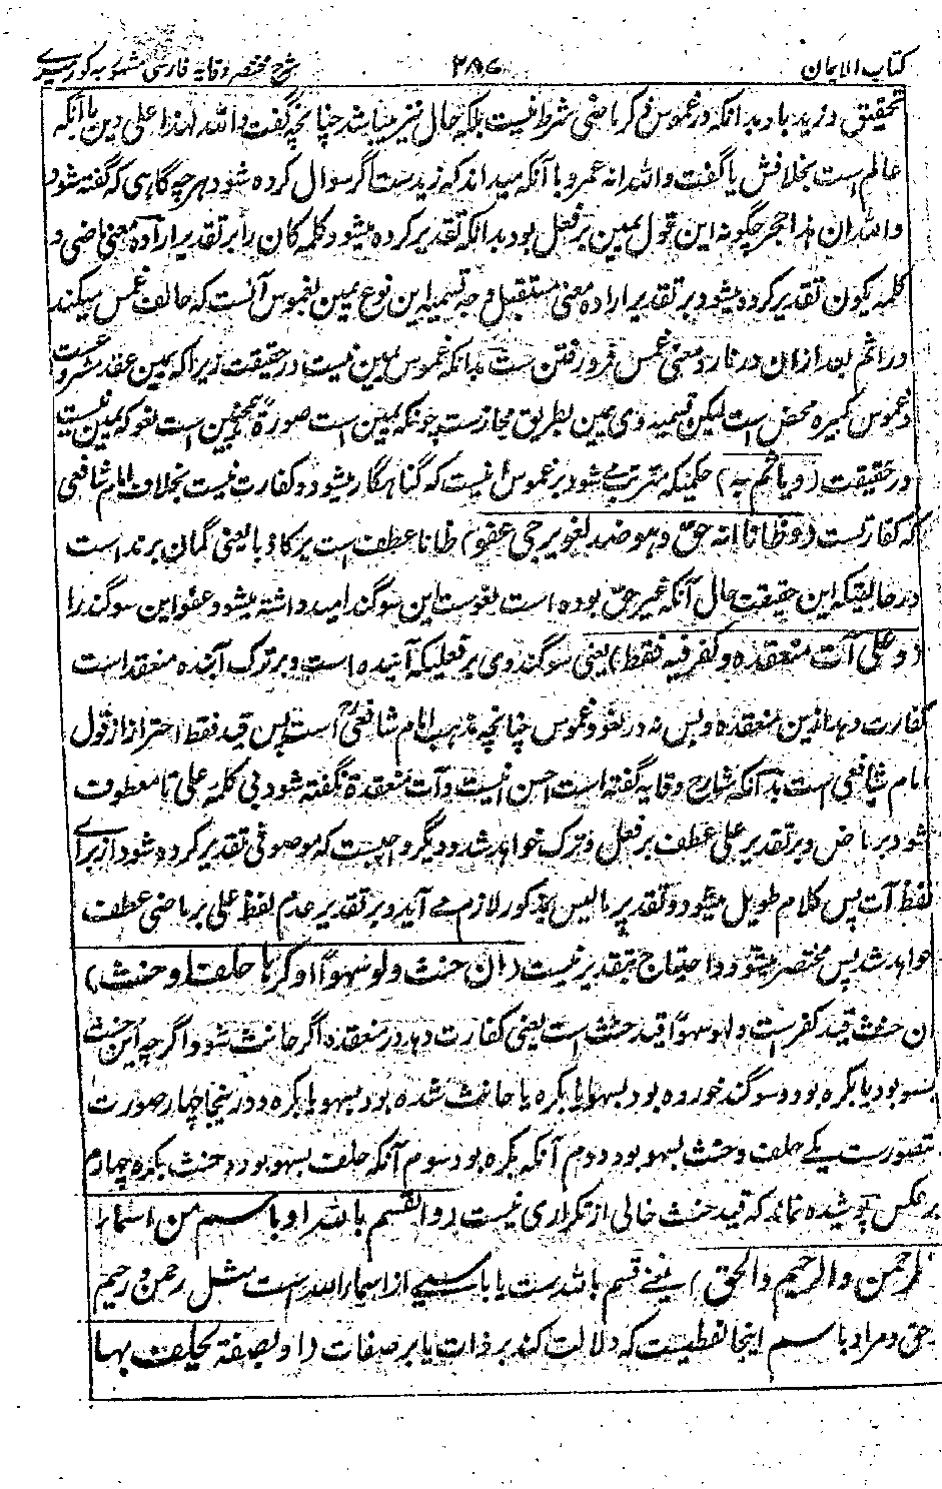 کتاب الایمان ۲۸۶ شرح مختصر وقایه فارسی مشهور به کور میری
تحقیق و زید باد بدانکه در غموس ذکر ماضی شرط نیست بلکه حال نیز میباشد چنانچه گفت والله لهذا علی دین با آنکه
عالم است بخلافش یا گفت والله انه عمرو با آنکه میداند که زید ست اگر سوال کرده شود هر چه گاهی که گفته شود
والله ان هذا حجر چگونه این قول یمین بر فعل بود بدانکه تقدیر کرده میشود کلمه کان را بر تقدیر اراده معنی ماضی و
کلمه یکون تقدیر کرده میشود بر تقدیر اراده معنی مستقبل وجه تسمیه این نوع یمین بغموس آنست که حالف غمس میکند
در اثم بعد ازان در نار و معنی غمس فرو رفتن ست بدانکه غموس یمین نیست در حقیقت زیرا که یمین عقد مشروعست
و غموس کبیره محض است لیکن تسمیه وی یمین بطریق مجازست چونکه یمین است صورةً همچنین است لغو که یمین نیست
در حقیقت (و یاثم به) حکمیکه مترتب می شود بر غموس اینست که گناهگار میشود و کفارت نیست بخلاف امام شافعی
که کفارتست (و ظانا انه حق وهو ضده لغو یرجی عفوه) ظانا عطف است بر کاذبا یعنی گمان برنده است
در حالیکه این حقیقت حال آنکه غیر حق بوده است لغوست این سوگند امید داشته میشود عفو این سوگند را
(و علی آت منعقده و کفر فیه فقط) یعنی سوگند وی بر فعلیکه آینده است و بر ترک آینده منعقد است
کفارت دهد ازین منعقده و بس نه در لغو و غموس چنانچه مذهب امام شافعی رح است پس قید فقط احتراز از قول
امام شافعی است بدانکه شارح وقایه گفته است احسن اینست وآت منعقدة نگفته شود بی کلمه علی تا معطوف
شود بر ماض و بر تقدیر علی عطف بر فعل و ترک خواهد شد و دیگر واجبست که موصوفی تقدیر کرده شود از برای
لفظ آت پس کلام طویل میشود و تقدیر ما لیس بمذکور لازم می آید و بر تقدیر عدم لفظ علی بر ماضی عطف
خواهد شد پس مختصر میشود و احتیاج بتقدیر نیست (ان حنث ولو سهوًا او کرها حلف او حنث)
ان حنث قید کفر است و لو سهوًا قید حنث است یعنی کفارت دهد در منعقده اگر حانث شود و اگر چه این حنث
بسهو بود یا بکره بود و سوگند خورده بود بسهو یا بکره یا حانث شده بود بسهو یا بکره و در ینجا چهار صورت
متصورست یکی حلف و حنث بسهو بود دوم آنکه بکره بود سوم آنکه حلف بسهو بود و حنث بکره چهارم
بر عکس پوشیده نماند که قید حنث خالی از تکراری نیست (و القسم بالله او باسم من اسمائه
کالرحمن والرحیم والحق) یعنی قسم بالله ست یا باسمی از اسماء الله است مثل رحمن و رحیم
و حق و مراد باسم اینجا لفظیست که دلالت کند بر ذات یا بر صفات (او بصفة یحلف بها